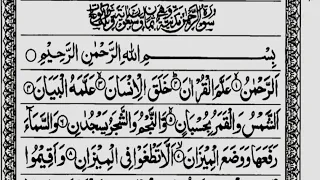 سورة الرحمن مدنية وهي ثمان وسبعون آية
بِسْمِ اللهِ الرَّحْمٰنِ الرَّحِيْمِ
اَلرَّحْمٰنُ عَلَّمَ الْقُرْاٰنَ خَلَقَ الْاِنْسَانَ عَلَّمَهُ الْبَيَانَ
اَلشَّمْسُ وَالْقَمَرُ بِحُسْبَانٍ وَّالنَّجْمُ وَالشَّجَرُ يَسْجُدٰنِ وَالسَّمَآءَ
رَفَعَهَا وَوَضَعَ الْمِيْزَانَ اَلَّا تَطْغَوْا فِي الْمِيْزَانِ وَاَقِيْمُوا